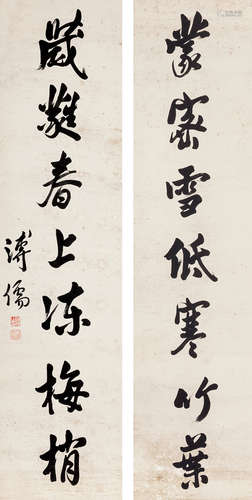 蒙密雪低寒竹葉
葳蕤春上凍梅梢
溥儒